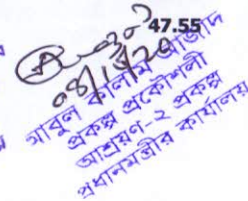 47.55
08/12/20
আবুল কালাম আজাদ
প্রকল্প প্রকৌশলী
আশ্রয়ণ-২ প্রকল্প
প্রধানমন্ত্রীর কার্যালয়